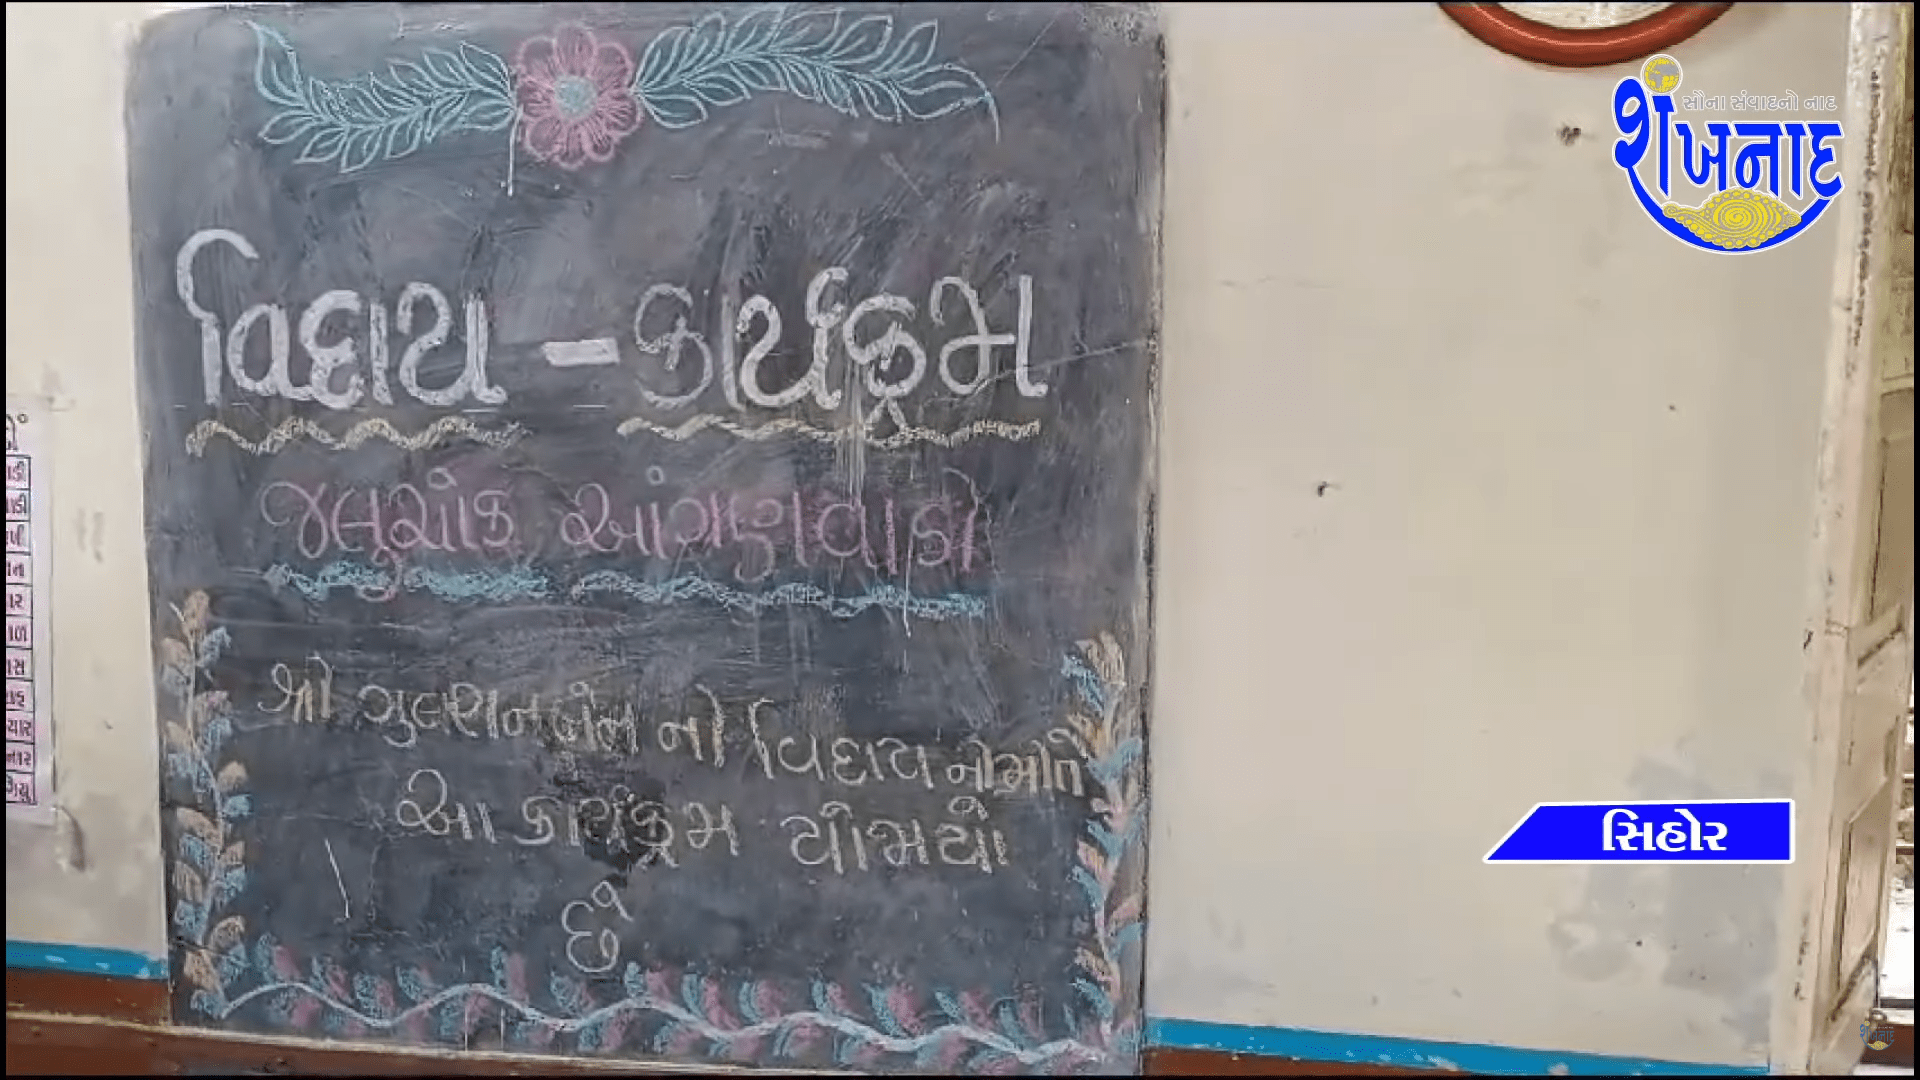 વિદાય - કાર્યક્રમ
જલુચોક આંગણવાડી
શ્રી ગુલશનબેન ની વિદાય નીમીતે
આ કાર્યક્રમ યોજાયો
છે
સૌના સંવાદનો નાદ
શંખનાદ
સિહોર